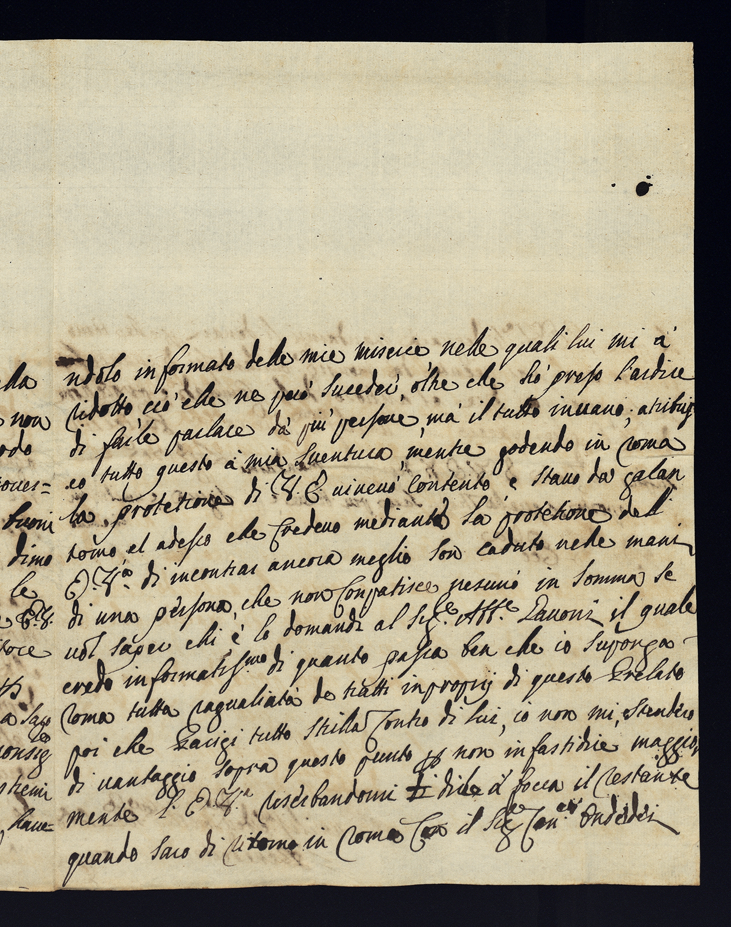 lla
non
odo
oues=
buoni
dimo
le
E. V.
tore
a sap
onsig
hieni
haue=
ndolo informato delle mie miserie nelle quali lui mi à
ridotto ciò che ne può succeder, oltre che hò preso l'ardire
di farle parlare da più persone, mà il tutto inuano, atribuis
co tutto questo à mia suentura, mentre godendo in roma
la protetione di V. E. uiueuo contento e stauo da galan
tomo el adesso che credeuo mediante la protetione dell'
E. V.a di incontrar ancora meglio son caduto nelle mani
di una persona, che non conpatisce nesuno in somma se
uol saper chi è lo domandi al Sig.e Ass.e Pauoni il quale
credo informatiss.mo di quanto passa ben che io suponga
roma tutta ragualiata de tratti inproprij di questo Prelato
poi che Parigi tutto strilla contro di lui, io non mi stendero
di uantaggio sopra questo punto p non infastidire maggior
mente l' E. V.a riserbandomi di dirle à bocca il restante
quando saro di ritorno in roma con il Sig.e Con.e Ondedei